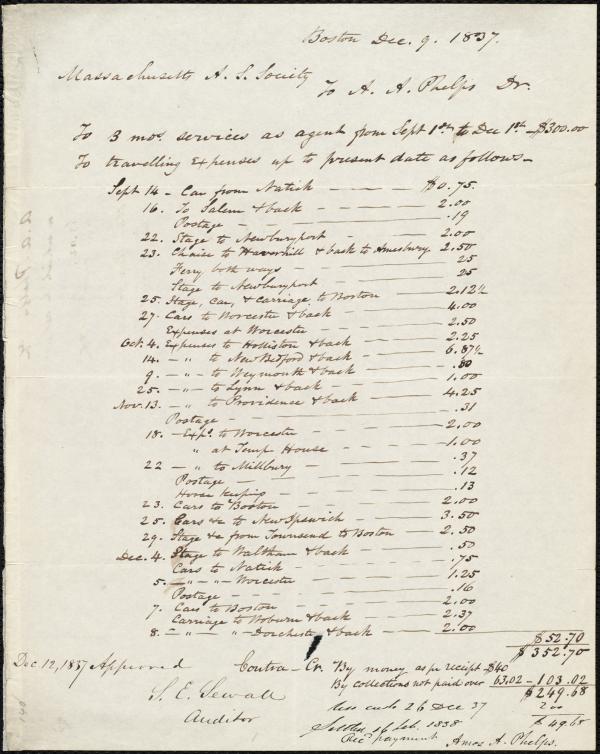 Boston Dec. 9. 1837.
Massachusetts A. S. Society
To A. A. Phelps Dr.
To 3 mos. services as agent from Sept 1st to Dec 1st - $300.00
To travelling expenses up to present date as follows -
Sept 14 - Car from Natick - $0.75
16. To Salem & back - 2.00
Postage - .19
22. Stage to Newburyport - 2.00
23. Chaise to Haverhill & back to Amesbury 2.50
Ferry both ways - 25
Stage to Newburyport - 25
25. Stage, Car, & carriage, to Boston 2.12½
27. Cars to Worcester & back 4.00
Expenses at Worcester - 2.50
Oct. 4. Expenses to Holliston & back - 2.25
14. - " - to New Bedford & back - 6.87½
9. - " - to Weymouth & back - .80
25. - " - to Lynn & back - 1.00
Nov. 13. - " - to Providence & back - 4.25
Postage - .31
18. - Exps. to Worcester - 2.00
" at Temp House - 1.00
22 - " - to Millbury - .37
Postage - .12
Horse keeping - .13
23. Cars to Boston - 2.00
25. Cars &c to New Ipswich - 3.50
29. Stage &c from Townsend to Boston - 2.50
Dec. 4. Stage to Waltham & back - .50
Cars to Natick - .75
5. - " - " - Worcester - 1.25
Postage - .16
7. Cars to Boston - 2.00
Carriage to Woburn & back - 2.37
8. - " - " - Dorchester & back - 2.00
$52.70
$352.70
Dec 12, 1837 Approved
S. E. Sewall
Auditor
Contra - Cr. By money as pr receipt - $40
By collections not paid over 63.02 - 103.02
$249.68
less cash 26 Dec 37 200
$49.68
Settled 16 Feb. 1838
Rec. payment
Amos A. Phelps.